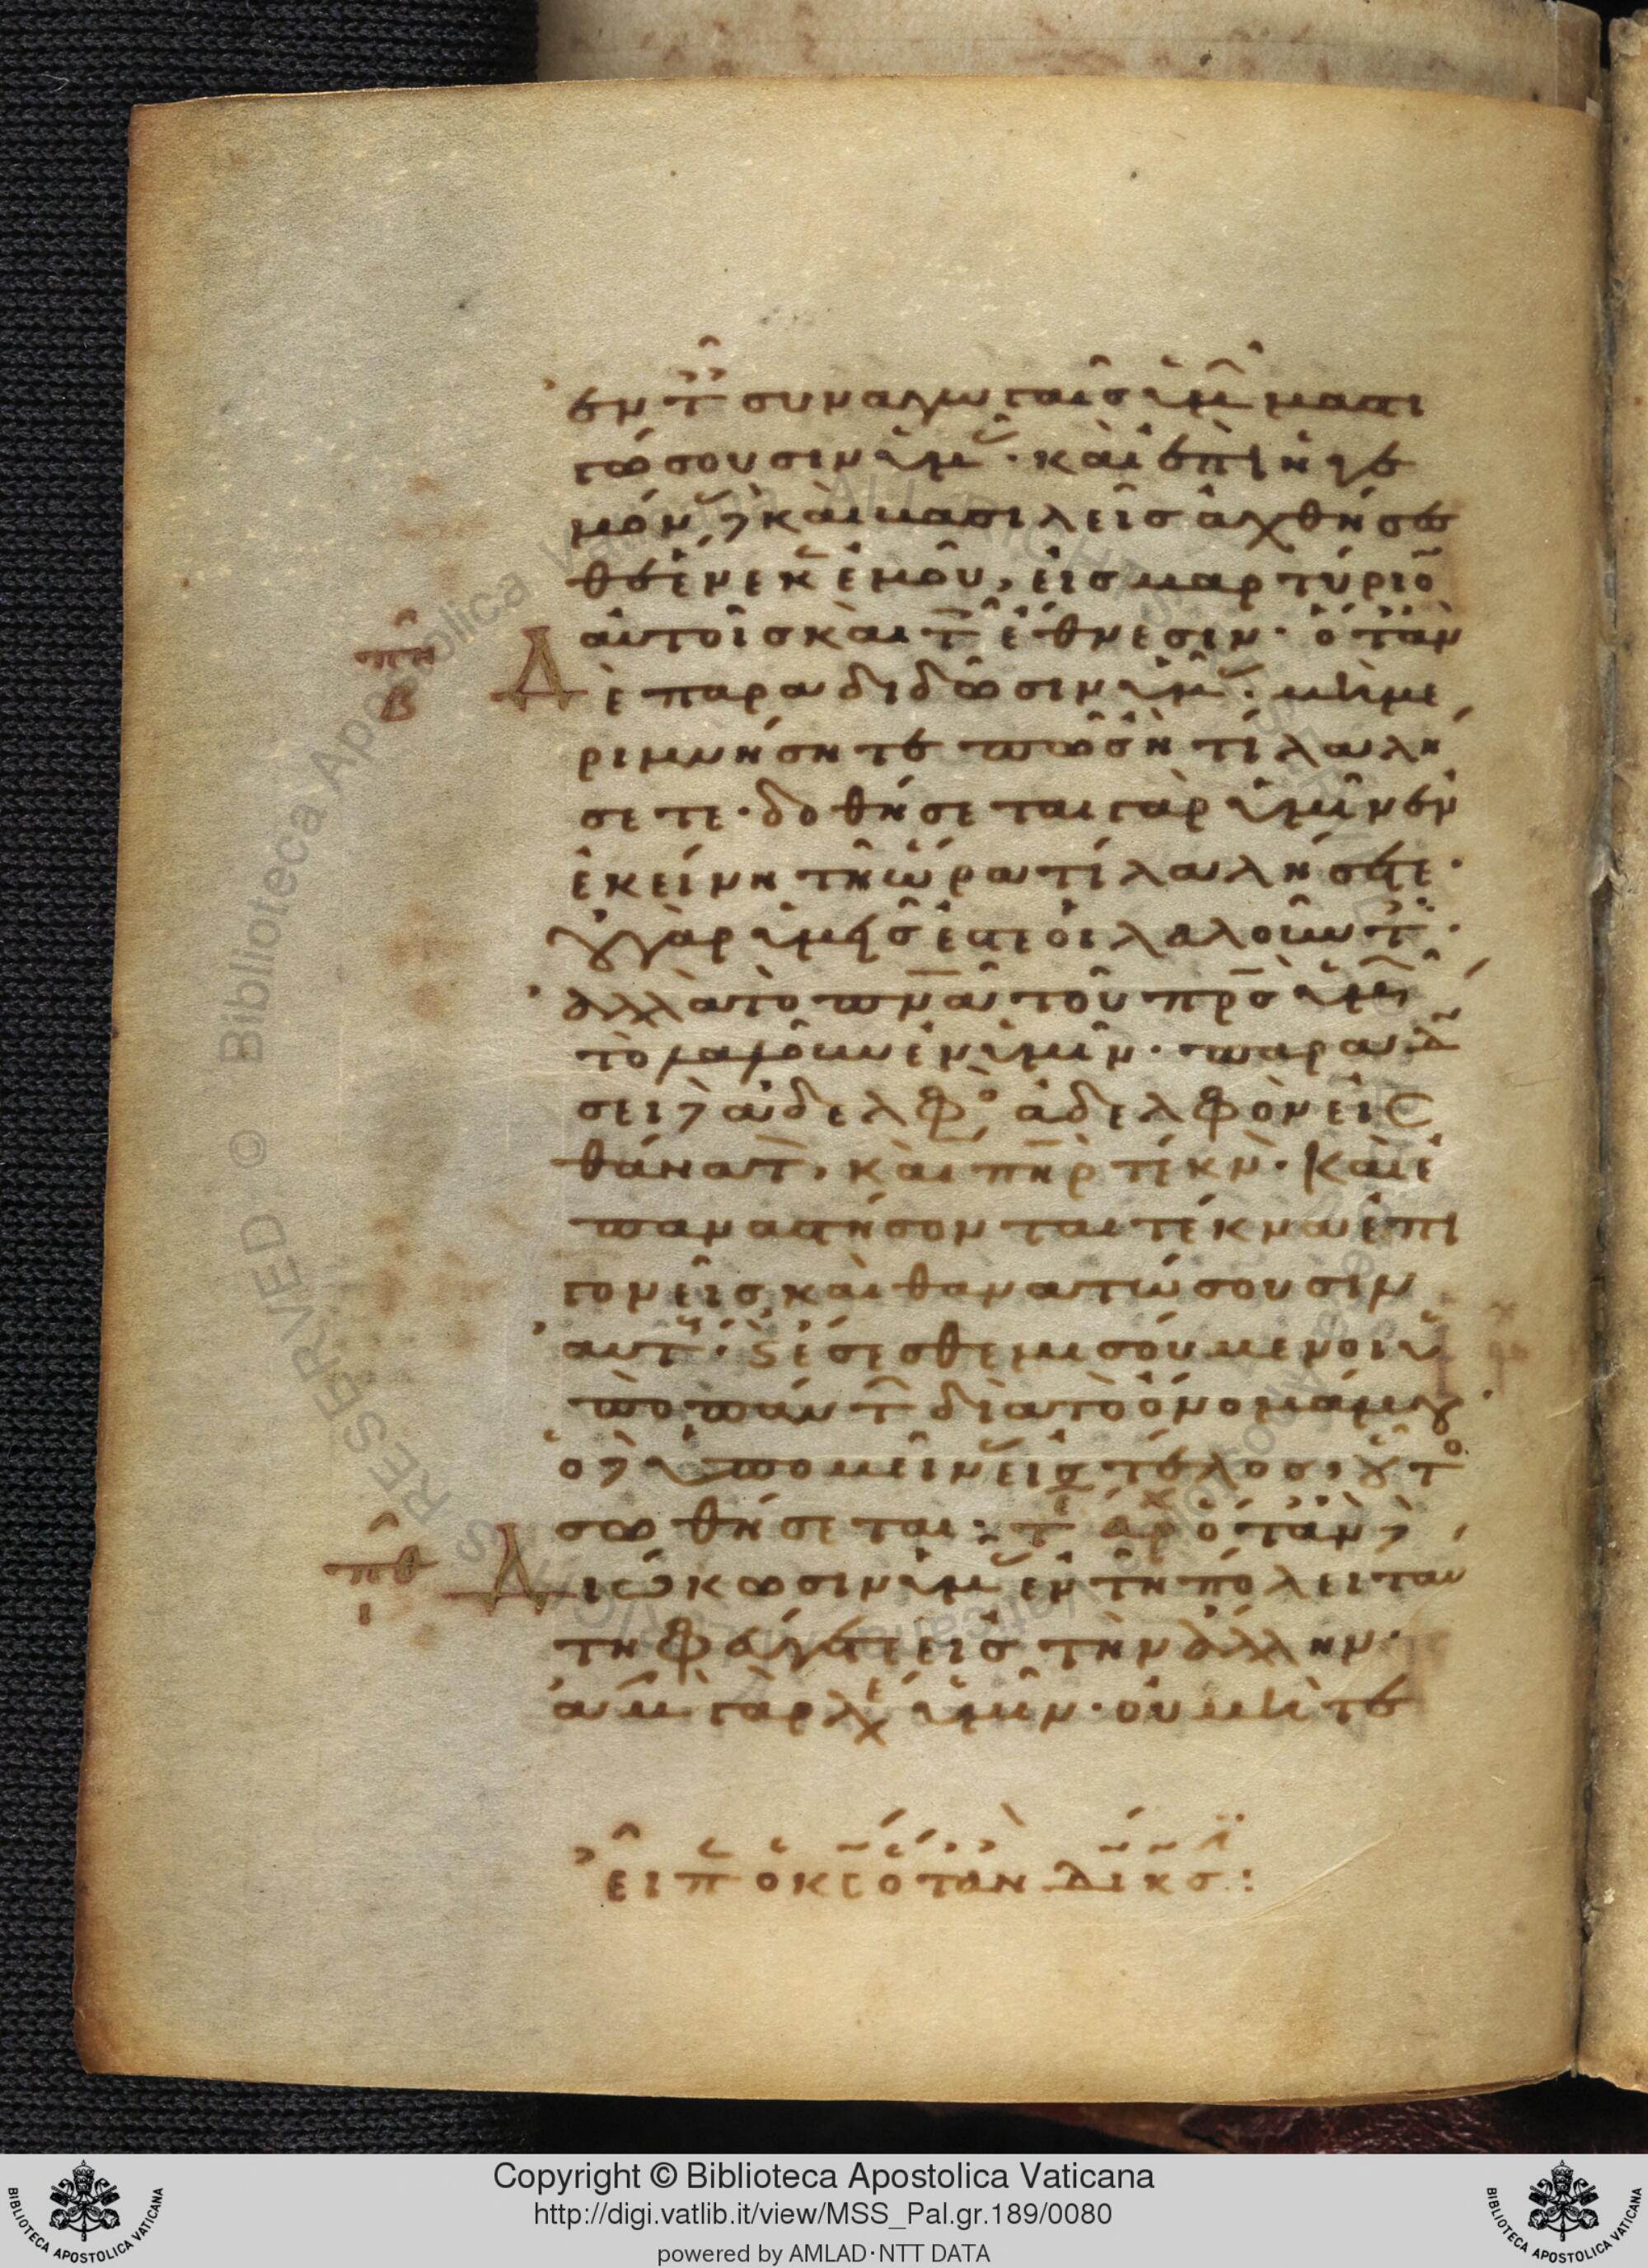 ἐν τ συναγωγαῖς ὑμ μαστι
γώσουσιν ὑμ. καὶ ἐπὶ ἡγε
μόν δὲ καὶ βασιλεῖς ἀχθήσε
σθε ἕνεκ ἐμοῦ, εἰς μαρτύριο
αὐτοῖς καὶ τ ἔθνεσιν. ὅταν
πη
β
Δὲ παραδιδῶσιν ὑμ. μὴ με
ριμνήσητε πῶς ἢ τί λαλή
σετε. δοθήσεται γὰρ ὑμῖν ἐν
ἐκείνη τῆ ὥρα τί λαλήσετε.
οὐ γὰρ ὑμεῖς ἐστε οἱ λαλοῦντ.
ἀλλὰ τὸ πνα τοῦ πρσ ὑμ
τὸ λαλοῦν ἐν ὑμῖν. παραδ
σει δὲ ἀδελφο ἀδελφὸν εἰς
θάνατ, καὶ πηρ τέκν. καὶ ἐ
παναστήσονται τέκνα ἐπὶ
γονεῖς καὶ θανατώσουσιν
αὐτ. ϛ ἔσεσθε μισούμενοι ὑ
πὸ πάντ διὰ τὸ ὄνομά μου.
ὁ δὲ ὑπομείν εἰς τέλος, οὗτο
σωθήσεται: τε αρχ ὅταν δὲ
πθ
ι
Διώκωσιν ὑμ ἐν τῆ πόλει ταύ
τη φεύγετε εἰς τὴν ἄλλην.
ἀμ γὰρ λε ὑμῖν. οὐ μὴ τε
εἶπ ὁ κς ὅταν διωκσ:
Copyright © Biblioteca Apostolica Vaticana
http://digi.vatlib.it/view/MSS_Pal.gr.189/0080
powered by AMLAD·NTT DATA
BIBLIOTECA APOSTOLICA VATICANA
BIBLIOTECA APOSTOLICA VATICANA